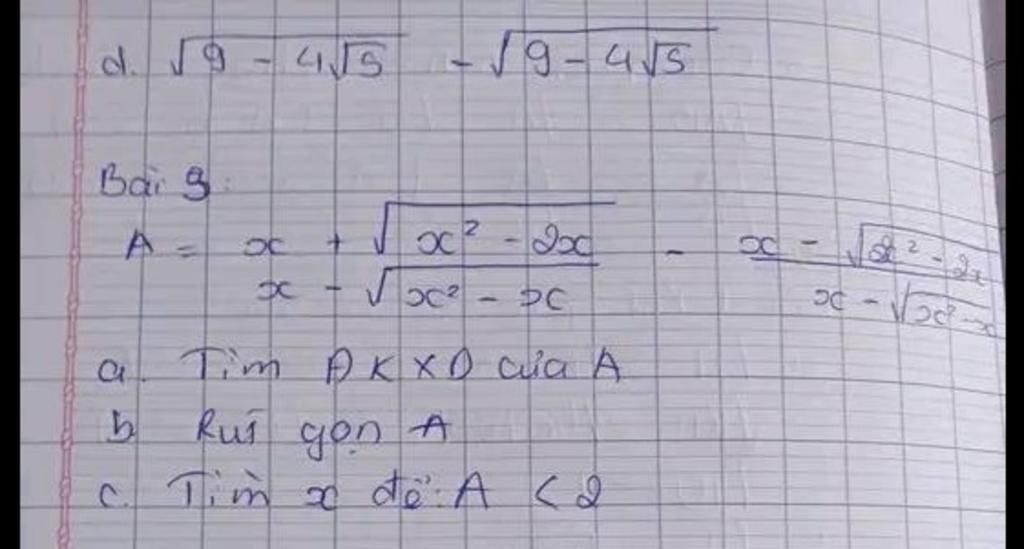 d. √(9 - 4√5) - √(9 - 4√5)
Bài 9:
A = (x + √(x² - 2x))/(x - √(x² - x)) - (x - √(x² - 2x))/(x - √(x² - x))
a. Tìm ĐKXĐ của A
b Rút gọn A
c. Tìm x để: A < 2